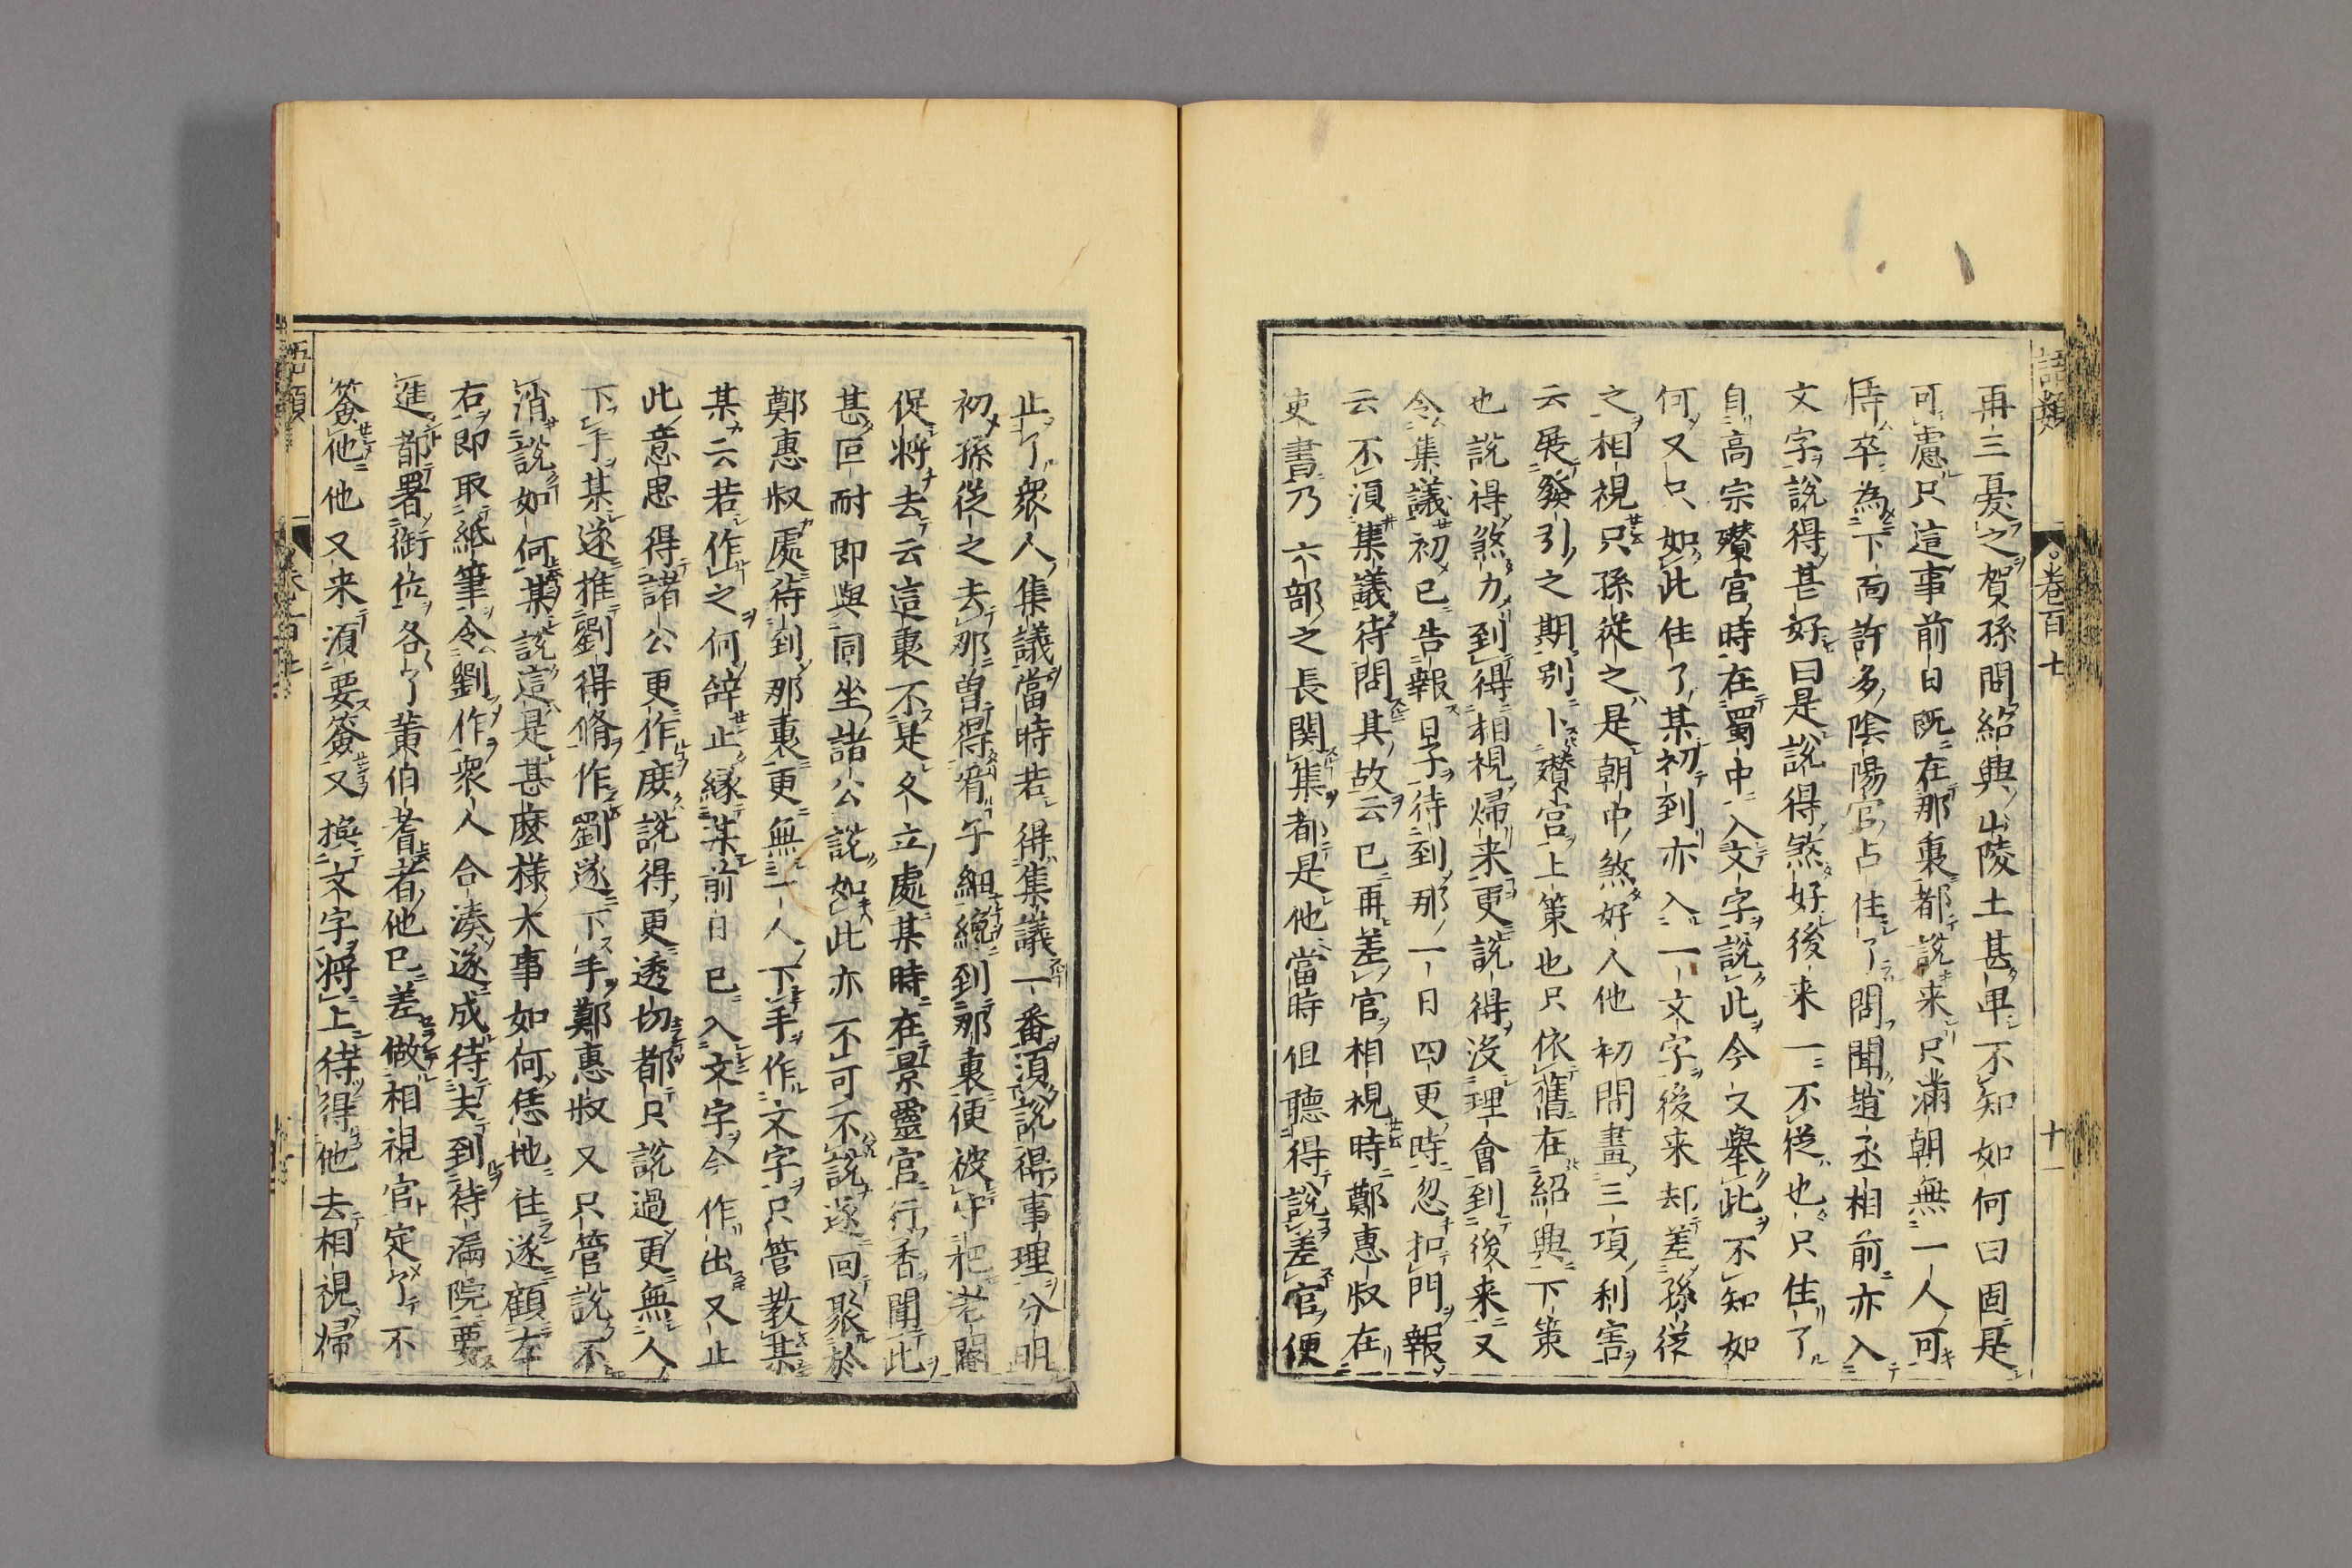 語類
卷百七
十一
再三憂之賀孫問紹興山陵土甚卑不知如何曰固是
可慮只這事前日既在那裏都説来只滿朝無一人可
恃卒為下面許多陰陽官占住了問聞趙丞相前亦入
文字説得甚好曰是説得煞好後来一不從也只住了
自高宗欑宮時在蜀中入文字説此今又舉此不知如
何又只如此住了某初到亦入一文字後来却差孫從
之相視只孫從之是朝中煞好人他初問畫三項利害
云展發引之期別卜欑宮上策也只依舊在紹興下策
也説得煞力到得相視帰来更説得没理會到後来又
令集議初已告報日子待到那一日四更時忽扣門報
云不湏集議待問其故云已再差官相視時鄭惠叔在
吏書乃六部之長関集都是他當時但聽得説差官便
止了衆人集議當時若得集議一番湏説得事理分明
初孫從之去那曽得看子細纔到那裏便被守把老閽
促將去云這裏不是久立處某時在景靈宮行香聞此
甚叵耐即與同坐諸公説如此亦不可不説遂回聚於
鄭惠叔處待到那裏更無一人下手作文字只管教某
某云若作之何辞止縁某前日已入文字今作出又止
此意思得諸公更作度説得更透切都只説過更無人
下手某遂推劉得脩作劉遂下手鄭惠叔又只管説不
消説如何某説這是甚麼樣大事如何恁地住遂顧左
右即取紙筆令劉作衆人合湊遂成待去到待漏院要
進都署銜位各了黄伯耆者他已差做相視官定了不
簽他他又来湏要簽又換文字將上待得他去相視帰
語類
卷百七